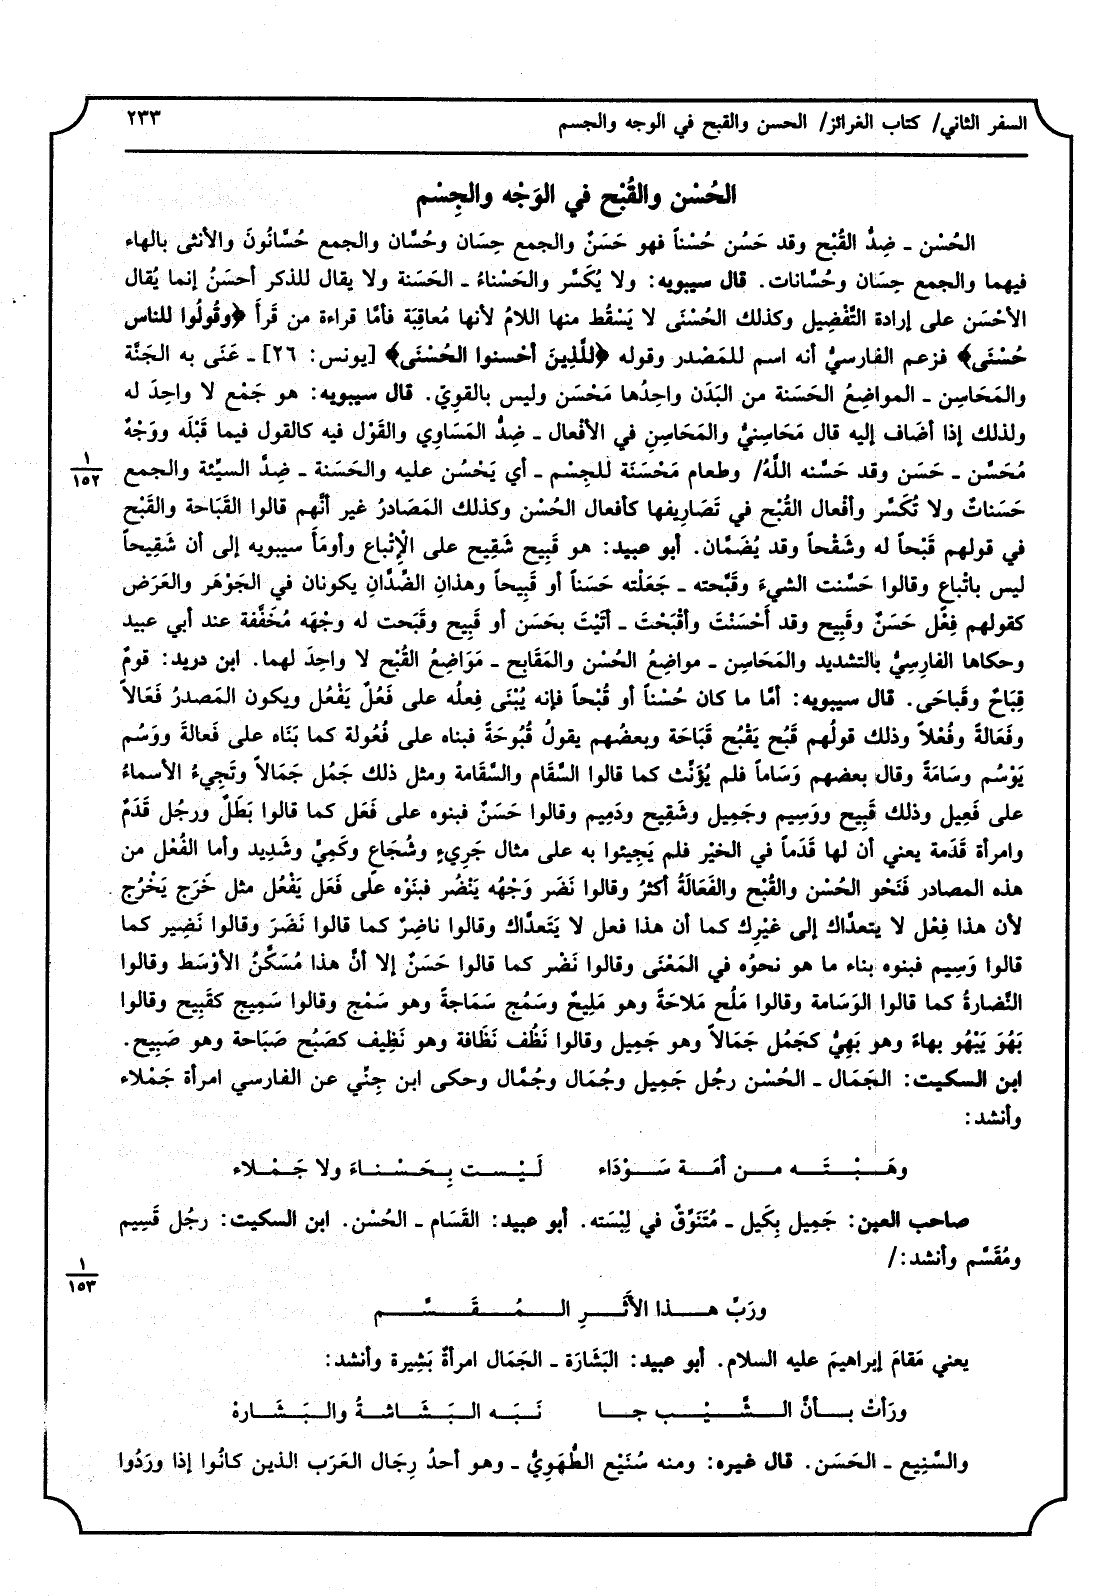 السفر الثاني/ كتاب الغرائز/ الحسن والقبح في الوجه والجسم ٢٣٣
الحُسْن والقُبْح في الوَجْه والجِسْم
الحُسْن ـ ضِدُّ القُبْح وقد حَسُن حُسْناً فهو حَسَنٌ والجمع حِسَان وحُسَّان والجمع حُسَّانُونَ والأنثى بالهاء
فيهما والجمع حِسَان وحُسَّانات. قال سيبويه: ولا يُكَسَّر والحَسْناءُ ـ الحَسَنة ولا يقال للذكر أحسَنُ إنما يُقال
الأحْسَن على إرادة التَّفْضِيل وكذلك الحُسْنَى لا يَسْقُط منها اللامُ لأنها مُعاقِبَة فأمَّا قراءة من قَرأَ ﴿وقُولُوا للناس
حُسْنَى﴾ فزعم الفارسيُّ أنه اسم للمَصْدر وقوله ﴿للَّذِينَ أحْسنوا الحُسْنَى﴾ [يونس: ٢٦] ـ عَنَى به الجَنَّة
والمَحَاسِن ـ المواضِعُ الحَسَنة من البَدَن واحِدُها مَحْسَن وليس بالقويّ. قال سيبويه: هو جَمْع لا واحِدَ له
ولذلك إذا أضَاف إليه قال مَحَاسِنيُّ والمَحَاسِن في الأفْعال ـ ضِدُّ المَسَاوِي والقَوْل فيه كالقول فيما قَبْلَه ووَجْهٌ
مُحَسَّن ـ حَسَن وقد حَسَّنه اللَّهُ/ وطعام مَحْسَنَة للجِسْم ـ أي يَحْسُن عليه والحَسَنة ـ ضِدَّ السيِّئة والجمع
١
١٥٢
حَسَناتٌ ولا تُكَسَّر وأفْعال القُبْح في تَصَارِيفها كأفعال الحُسْن وكذلك المَصَادرُ غير أنَّهم قالوا القَبَاحة والقَبْح
في قولهم قَبْحاً له وشَقْحاً وقد يُضَمَّان. أبو عبيد: هو قَبِيح شَقِيح على الإتْباع وأومَأَ سيبويه إلى أن شَقِيحاً
ليس باتْباعٍ وقالوا حَسَّنت الشيءَ وقَبَّحته ـ جَعَلْته حَسَناً أو قَبِيحاً وهذانِ الضِّدَّانِ يكونان في الجَوْهَر والعَرَض
كقولهم فِعْل حَسَنٌ وقَبِيح وقد أَحْسَنْتَ وأقْبَحْتَ ـ أتَيْتَ بحَسَن أو قَبِيح وقَبَحت له وجْهَه مُخَفَّفة عند أبي عبيد
وحكاها الفارِسِيُّ بالتشديد والمَحَاسِن ـ مواضِعُ الحُسْن والمَقَابح ـ مَوَاضِعُ القُبْح لا واحِدَ لهما. ابن دريد: قومٌ
قِبَاحٌ وقَباحَى. قال سيبويه: أمَّا ما كان حُسْناً أو قُبْحاً فإنه يُبْنَى فِعلُه على فَعُلَ يَفْعُل ويكون المَصدرُ فَعَالاً
وفَعَالةً وفُعْلاً وذلك قولُهم قَبُح يَقْبُح قَبَاحَة وبعضُهم يقولُ قُبُوحَةً فبناه على فُعُولة كما بَنَاه على فَعالة ووَسُم
يَوْسُم وسَامَةً وقال بعضهم وَسَاماً فلم يُؤَنَّث كما قالوا السَّقَام والسَّقَامة ومثل ذلك جَمُل جَمَالاً وتَجِيءُ الأسماءُ
على فَعِيل وذلك قَبِيح ووَسِيم وجَمِيل وشَقِيح ودَمِيم وقالوا حَسَنٌ فبنوه على فَعَل كما قالوا بَطَلٌ ورجُل قَدَمٌ
وامرأة قَدَمة يعني أن لها قَدَماً في الخيْر فلم يَجِيئوا به على مثال جَرِيءٍ وشُجَاعٍ وكَمِيٍّ وشَدِيد وأما الفُعْل من
هذه المصادر فَنَحْو الحُسْن والقُبْح والفَعَالَةُ أكثرُ وقالوا نَضَر وَجْهُه يَنْضُر فبنَوْه على فَعَل يَفْعُل مثل خَرَج يَخْرُج
لأن هذا فِعْل لا يتعدَّاك إلى غيْرِك كما أن هذا فعل لا يَتَعدَّاك وقالوا ناضِرٌ كما قالوا نَضَرَ وقالوا نَضِير كما
قالوا وَسِيم فبنوه بناء ما هو نحوُه في المَعْنَى وقالوا نَضْر كما قالوا حَسَنٌ إلا أنَّ هذا مُسَكَّنُ الأوْسَط وقالوا
النَّضارةُ كما قالوا الوَسَامة وقالوا مَلُح مَلاحَةً وهو مَلِيحٌ وسَمُج سَمَاجةً وهو سَمْج وقالوا سَمِيج كقَبِيح وقالوا
بَهُوَ يَبْهُو بهاءً وهو بَهِيٌّ كجَمُل جَمَالاً وهو جَمِيل وقالوا نَظُف نَظَافة وهو نَظِيف كصَبُح صَبَاحة وهو صَبِيح.
ابن السكيت: الجَمَال ـ الحُسْن رجُل جَمِيل وجُمَال وجُمَّال وحكى ابن جِنِّي عن الفارسي امرأة جَمْلاء
وأنشد:
وهَبْتَه من أمَة سَوْدَاء لَيْست بِحَسْناءَ ولا جَمْلاء
صاحب العين: جَمِيل بَكَيل ـ مُتَنَوِّقٌ في لِبْسَته. أبو عبيد: القَسَام ـ الحُسْن. ابن السكيت: رجُل قَسِيم
ومُقَسَّم وأنشد:/
١
١٥٣
ورَبِّ هذا الأَثَرِ المُقَسَّم
يعني مَقامَ إبراهيمَ عليه السلام. أبو عبيد: البَشَارَة ـ الجَمَال امرأةٌ بَشِيرة وأنشد:
ورَأتْ بأنَّ الشَّيْب جا نَبَه البَشَاشةُ والبَشَارهْ
والسَّنِيع ـ الحَسَن. قال غيره: ومنه سُنَيْع الطُّهَوِيُّ ـ وهو أحدُ رِجَال العَرَب الذين كانُوا إذا ورَدُوا